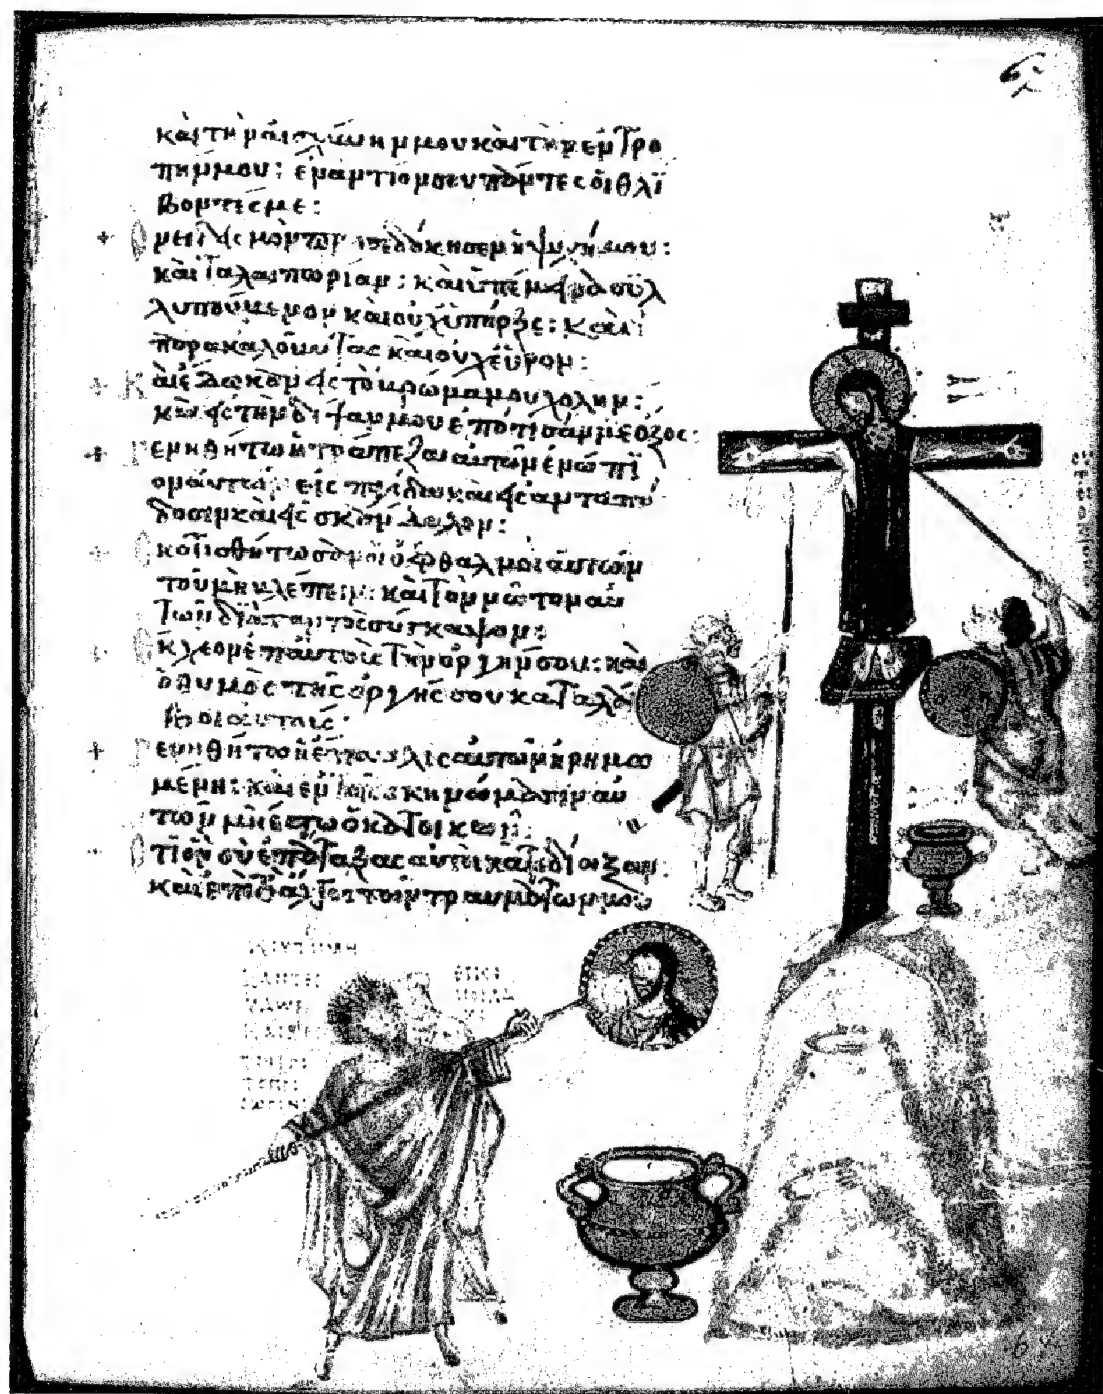 67
καὶ τὴν αἰσχύνην μου καὶ τὴν ἐντρο
πήν μου: ἐναντίον σου πάντες οἱ θλί
βοντές με:
+ Ὀνειδισμὸν προσεδόκησεν ἡ ψυχή μου:
καὶ ταλαιπωρίαν: καὶ ὑπέμεινα συλ
λυπούμενον καὶ οὐχ ὑπῆρξε: καὶ
παρακαλοῦντας καὶ οὐχ εὗρον:
+ Καὶ ἔδωκαν εἰς τὸ βρῶμά μου χολήν:
καὶ εἰς τὴν δίψαν μου ἐπότισάν με ὄξος:
+ Γενηθήτω ἡ τράπεζα αὐτῶν ἐνώπι
ον αὐτῶν εἰς παγίδα καὶ εἰς ἀνταπό
δοσιν καὶ εἰς σκάνδαλον:
+ Σκοτισθήτωσαν οἱ ὀφθαλμοὶ αὐτῶν
τοῦ μὴ βλέπειν: καὶ τὸν νῶτον αὐ
τῶν διὰ παντὸς σύγκαμψον:
+ Ἔκχεον ἐπ' αὐτοὺς τὴν ὀργήν σου: καὶ
ὁ θυμὸς τῆς ὀργῆς σου καταλά
βοι αὐτούς:
+ Γενηθήτω ἡ ἔπαυλις αὐτῶν ἠρημω
μένη: καὶ ἐν τοῖς σκηνώμασιν αὐ
τῶν μὴ ἔστω ὁ κατοικῶν:
+ Ὅτι ὃν σὺ ἐπάταξας αὐτοὶ κατεδίωξαν:
καὶ ἐπὶ τὸ ἄλγος τῶν τραυμάτων μου